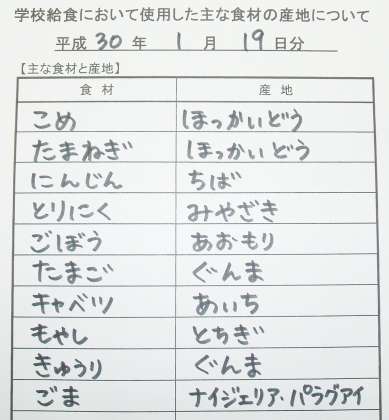 学校給食において使用した主な食材の産地について
平成 30 年 1 月 19 日分
【主な食材と産地】
食材 産地
こめ ほっかいどう
たまねぎ ほっかいどう
にんじん ちば
とりにく みやざき
ごぼう あおもり
たまご ぐんま
キャベツ あいち
もやし とちぎ
きゅうり ぐんま
ごま ナイジェリア、パラグアイ